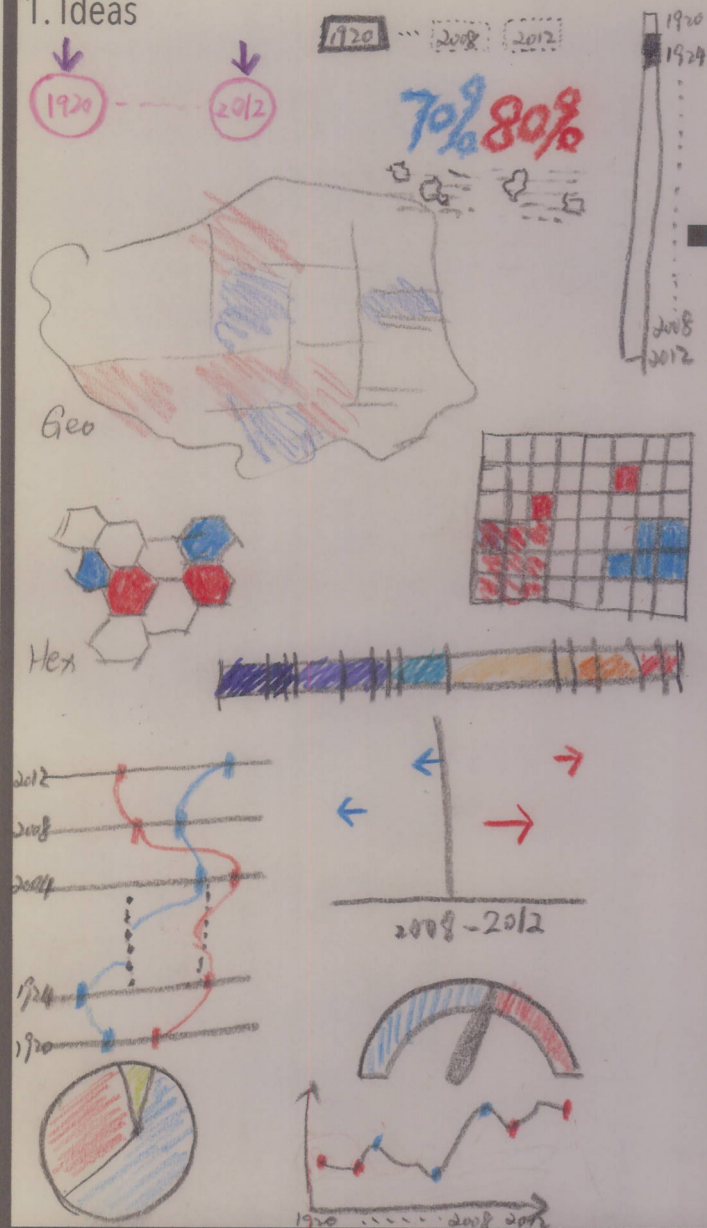 1. Ideas
1920 ... 2008 2012
1920
1924
2008
2012
1920 2012
70% 80%
Geo
Hex
2012
2008
2004
1924
1920
2008-2012
1920 ...... 2008 2012